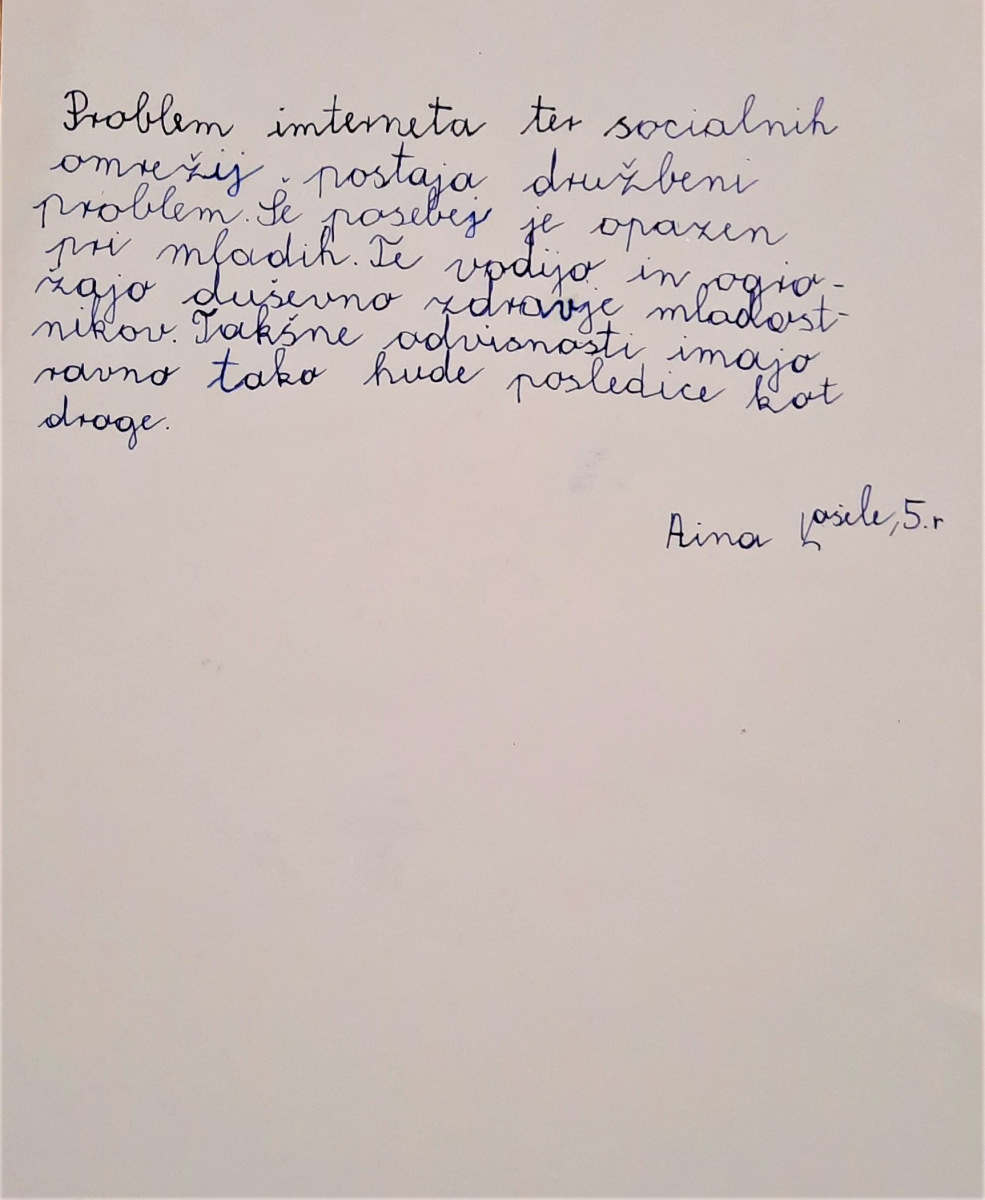 Problem interneta ter socialnih
omrežij postaja družbeni
problem. Še posebej je opazen
pri mladih. Te vodijo in ogro-
žajo duševno zdravje mladost-
nikov. Takšne odvisnosti imajo
ravno tako hude posledice kot
droge.
Aina Kosele, 5.r